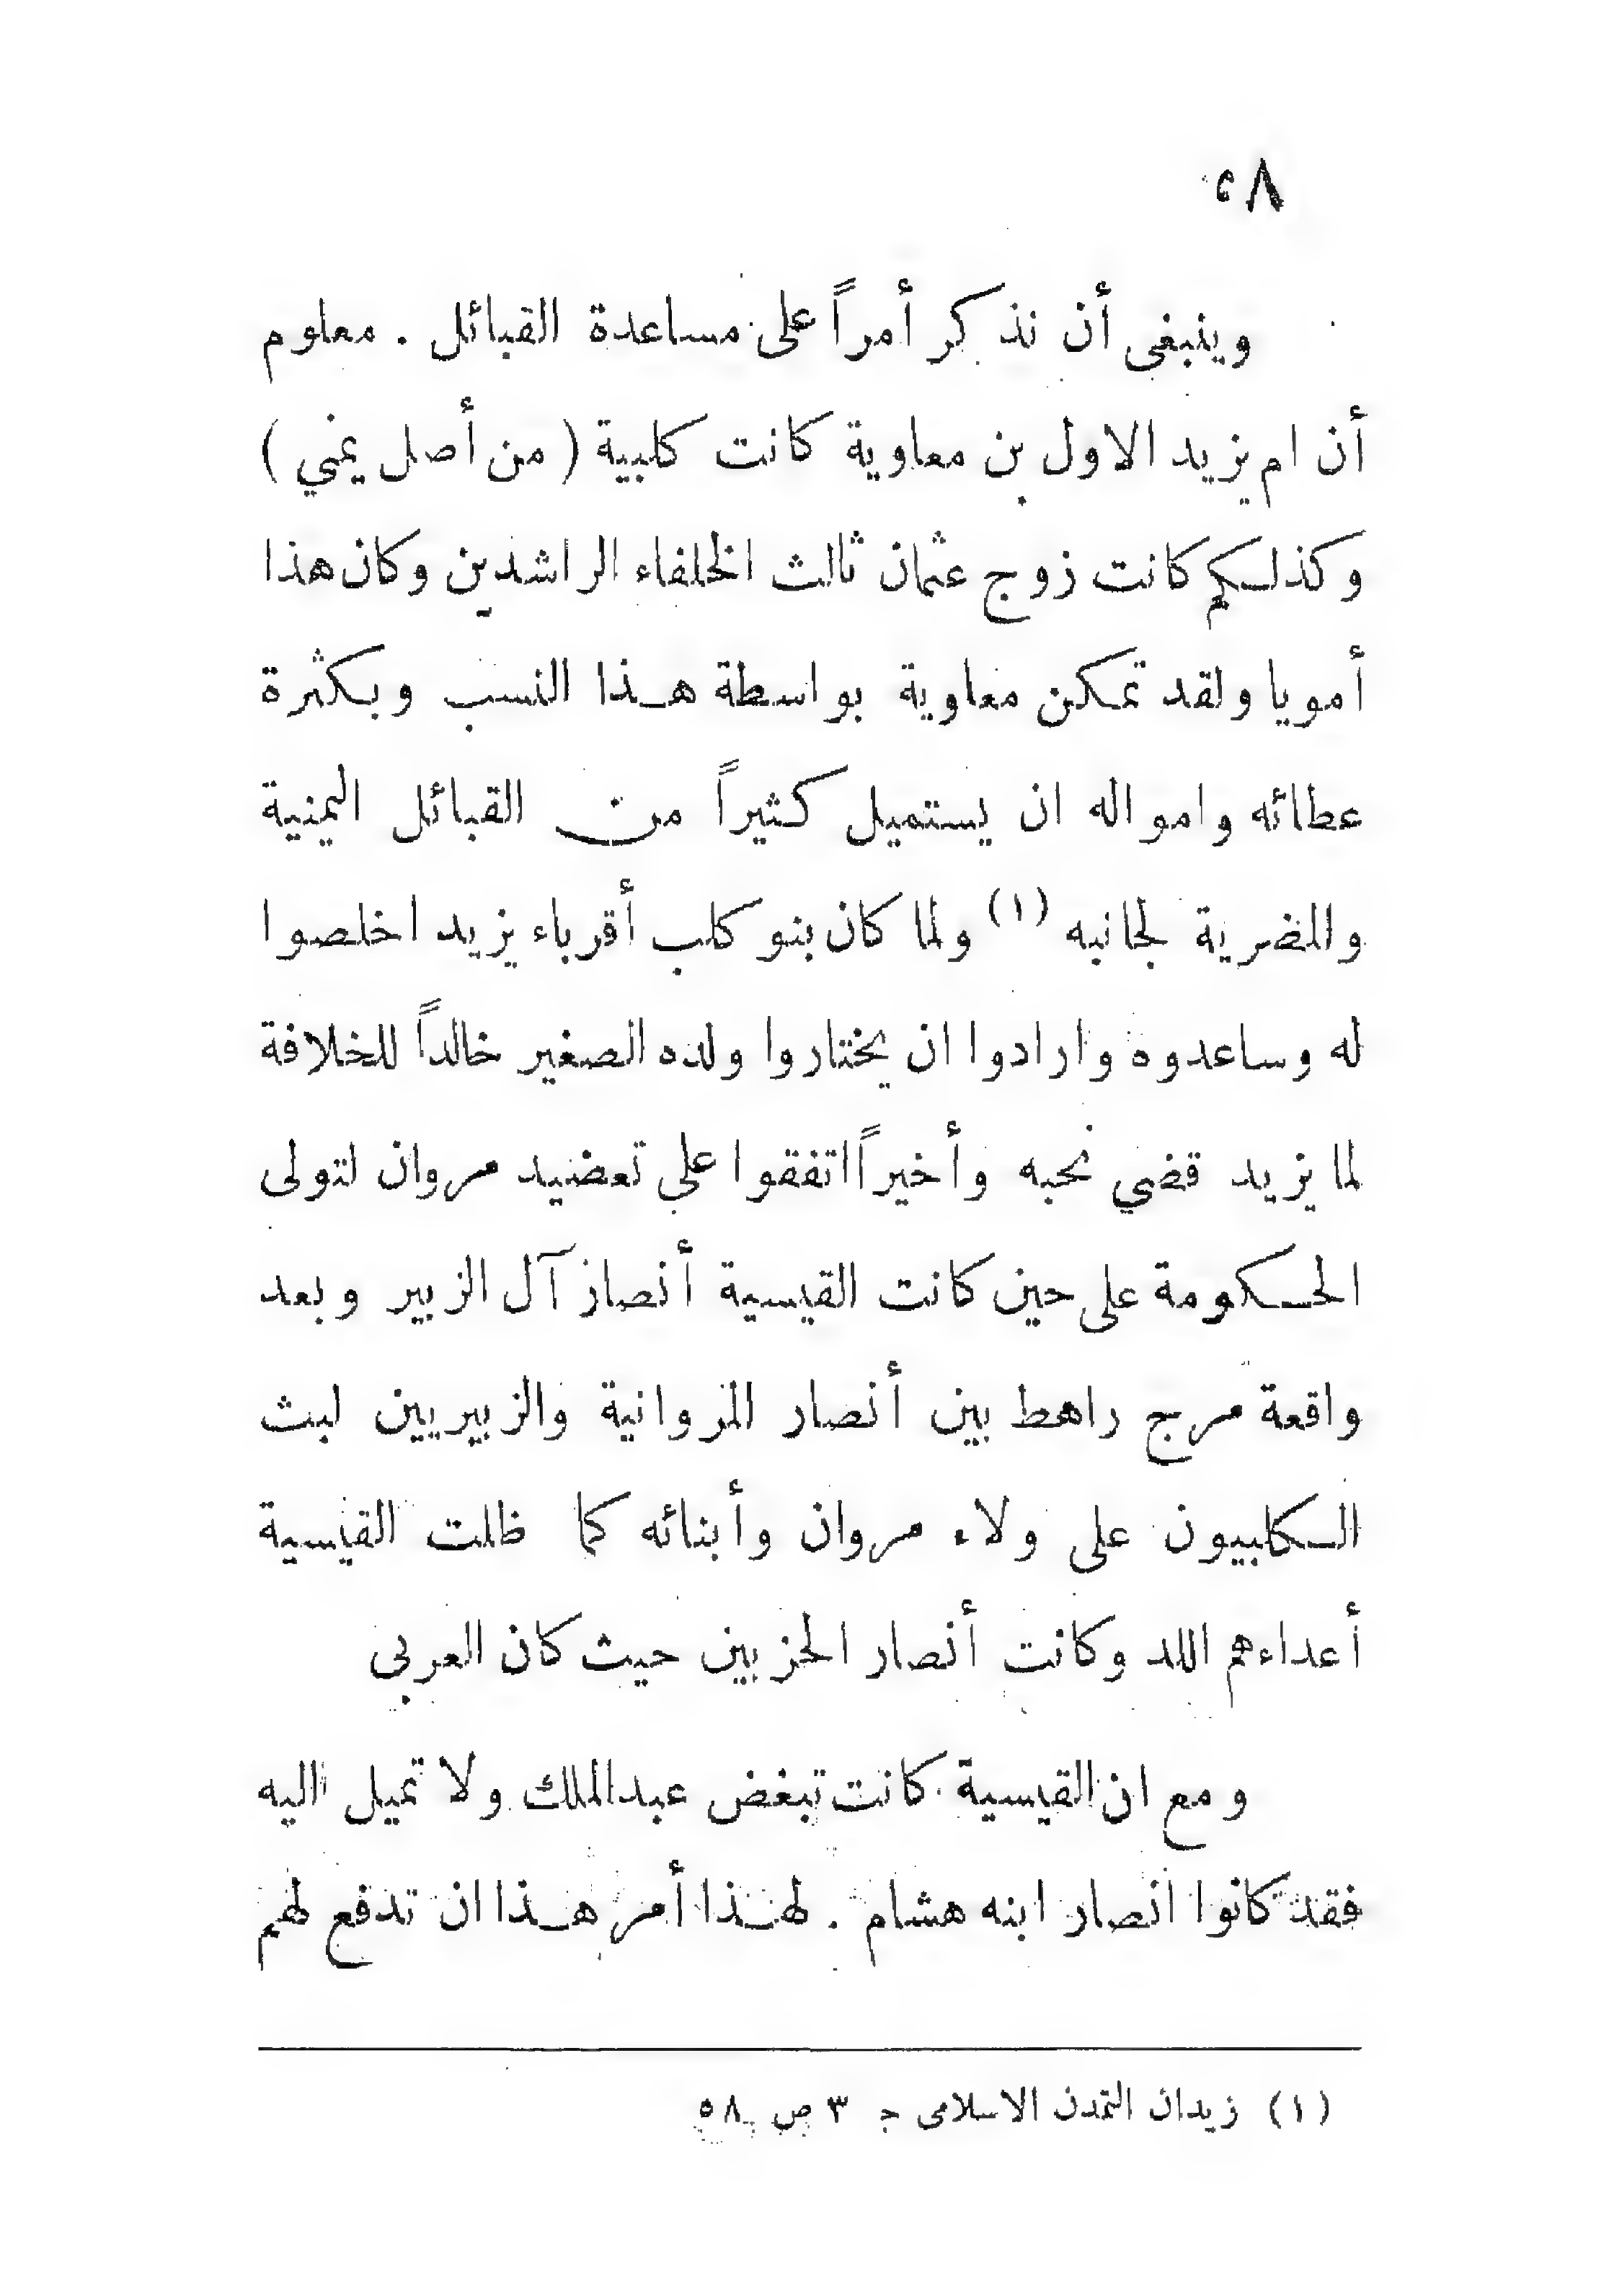 ٥٨
وينبغى أن نذكر أمراً على مساعدة القبائل . معلوم
أن ام يزيد الاول بن معاوية كانت كلبية ( من أصل يمني )
وكذلكم كانت زوج عثمان ثالث الخلفاء الراشدين وكان هذا
أمويا ولقد تمكن معاوية بواسطة هذا النسب وبكثرة
عطائه وامواله ان يستميل كثيراً من القبائل اليمنية
والمضرية لجانبه (١) ولما كان بنو كلب أقرباء يزيد اخلصوا
له وساعدوه وارادوا ان يختاروا ولده الصغير خالداً للخلافة
لما يزيد قضي نحبه وأخيراً اتفقوا على تعضيد مروان لتولى
الحكومة على حين كانت القيسية أنصار آل الزبير وبعد
واقعة مرج راهط بين أنصار المروانية والزبيريين لبث
الكلبيون على ولاء مروان وأبنائه كما ظلت القيسية
أعداءهم اللد وكانت أنصار الحزبين حيث كان العربى
ومع ان القيسية كانت تبغض عبدالملك ولا تميل اليه
فقد كانوا انصار ابنه هشام . لهذا أمر هذا ان تدفع لهم
(١) زيدان التمدن الاسلامى ج ٣ ص ٥٨